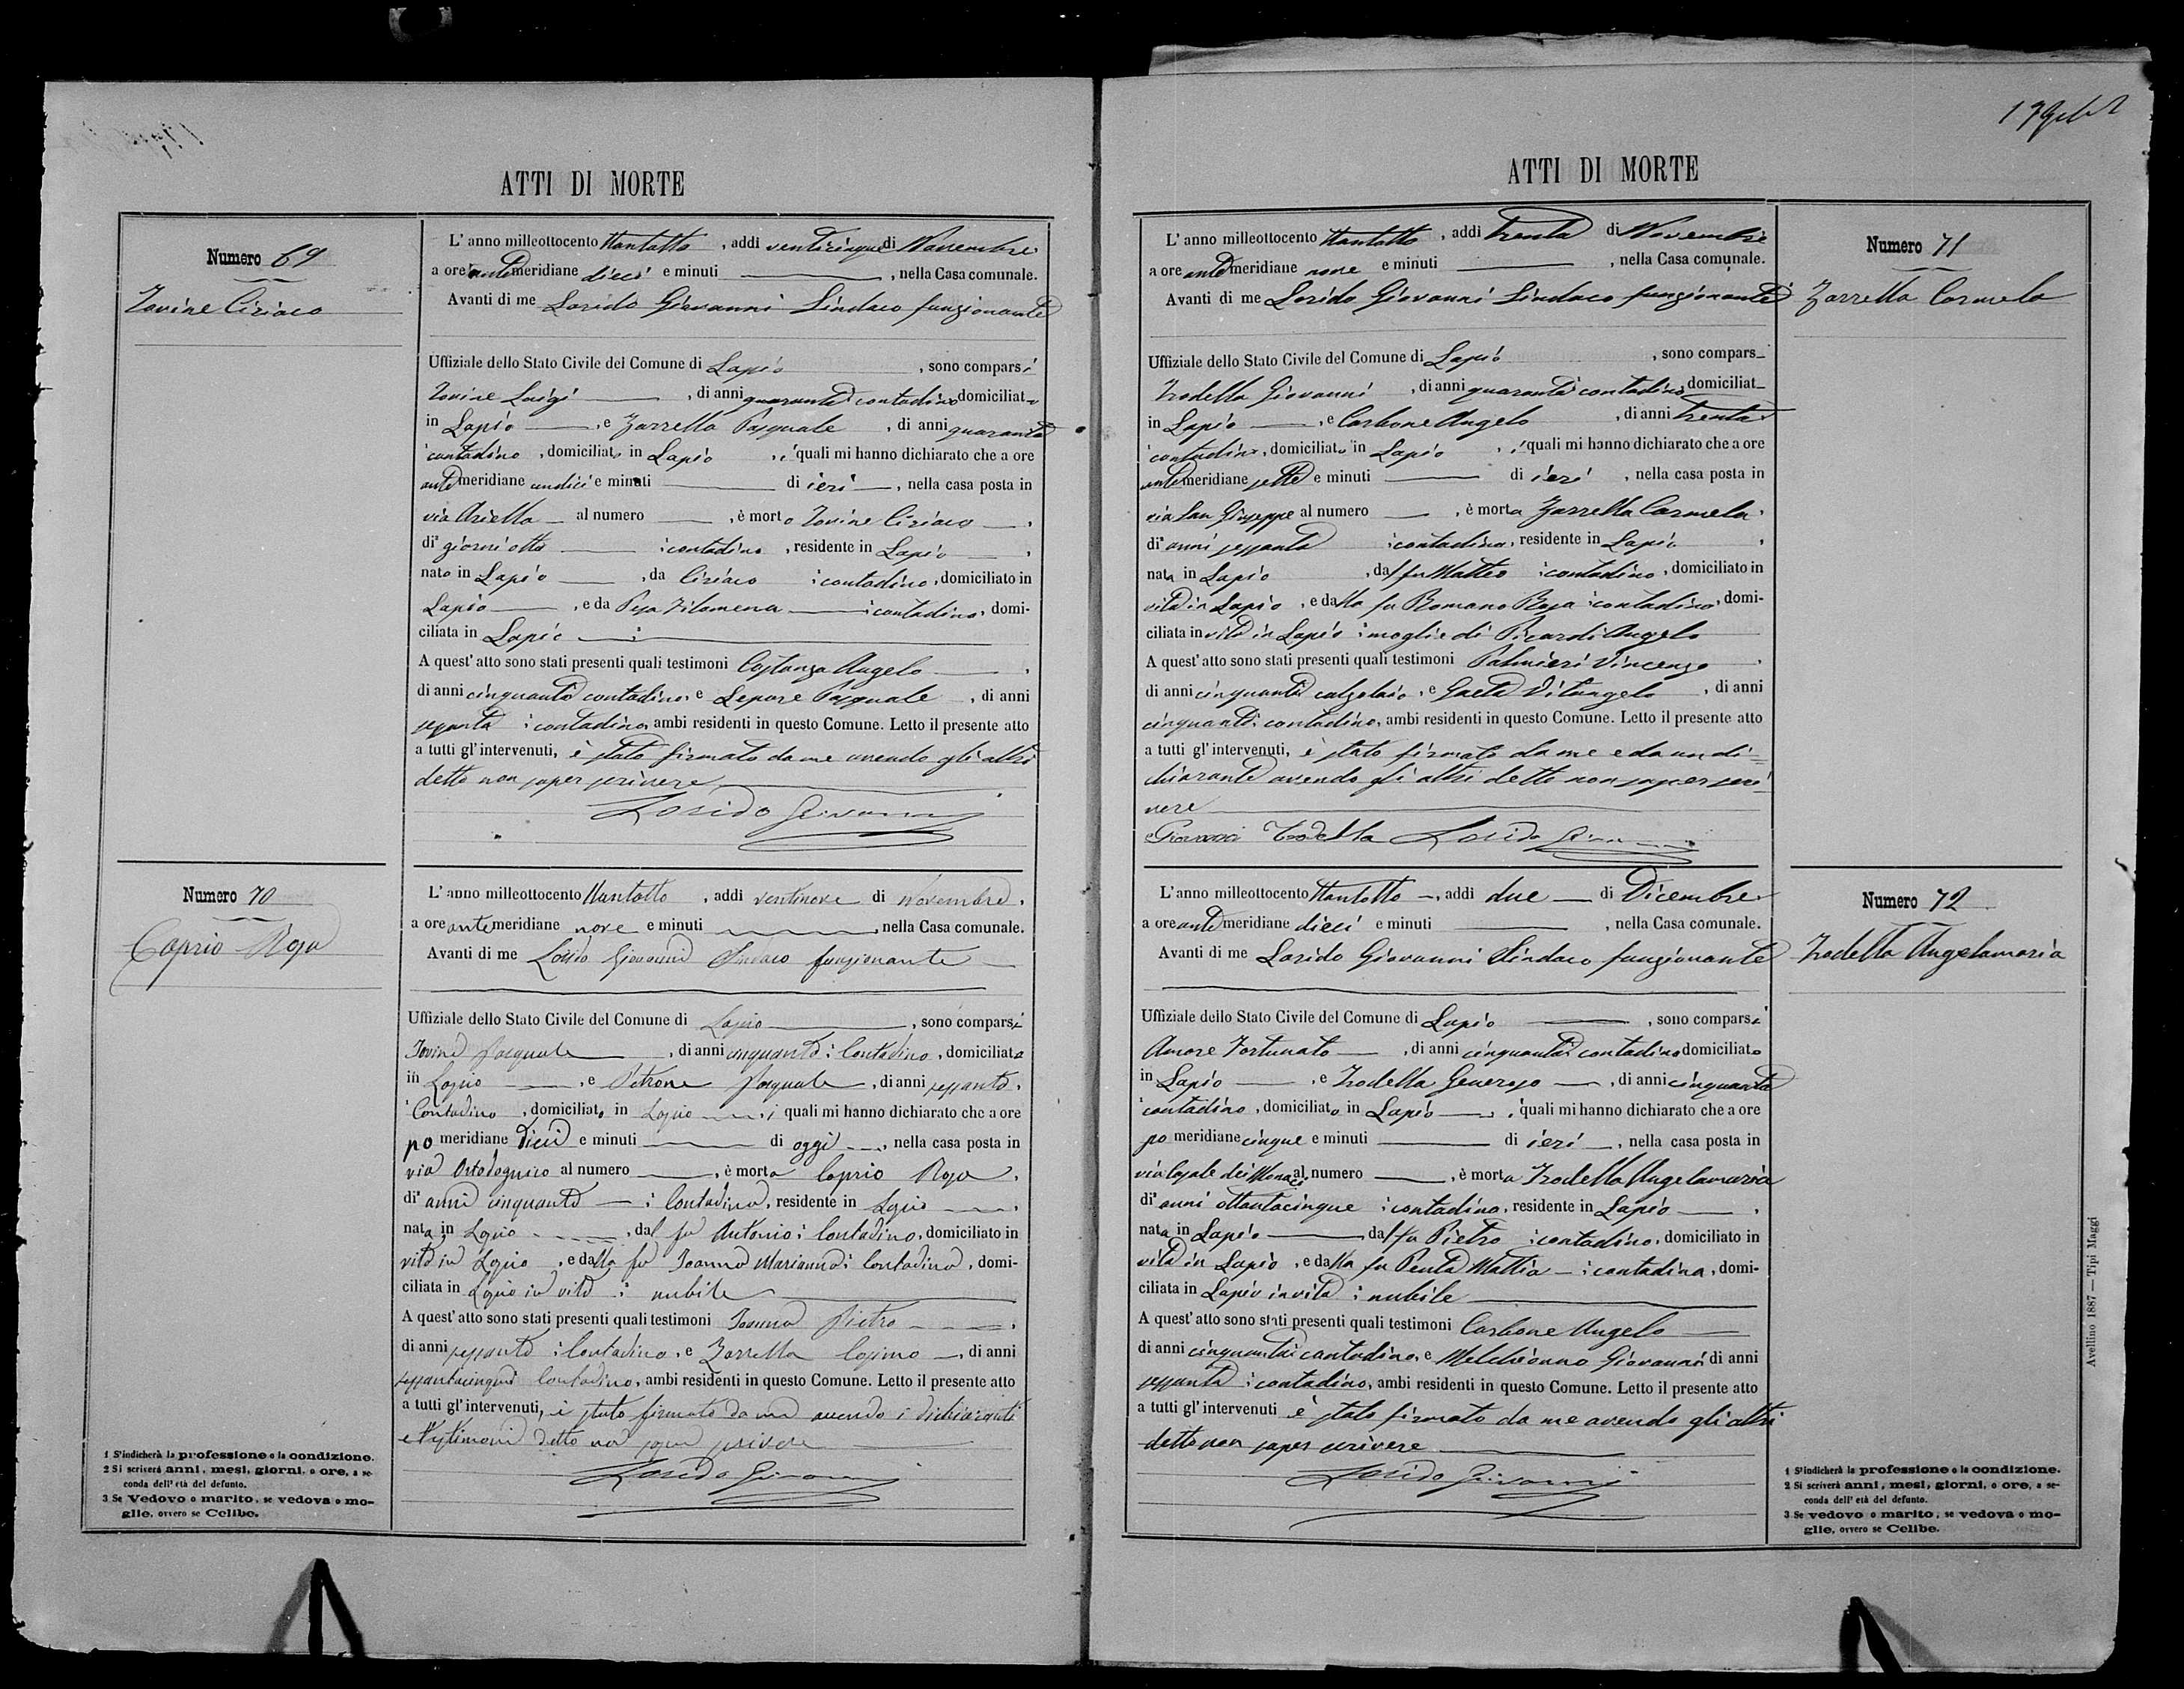 ATTI DI MORTE
Numero 69
Iovine Ciriaco
L'anno milleottocento ttantotto, addi venticinque di Novembre
a ore antemeridiane dieci e minuti, nella Casa comunale.
Avanti di me Losido Giovanni Sindaco funzionante
Uffiziale dello Stato Civile del Comune di Lapio, sono comparsi
Iovine Luigi, di anni quaranta contadino domiciliato
in Lapio, e Zarrella Pasquale, di anni quaranta
contadino, domiciliato in Lapio, i quali mi hanno dichiarato che a ore
antemeridiane undici e minuti di ieri, nella casa posta in
via Ariella al numero, è morto Iovine Ciriaco,
di giorni otto contadino, residente in Lapio,
nato in Lapio, da Ciriaco contadino, domiciliato in
Lapio, e da Pesa Filomena contadina, domi-
ciliata in Lapio
A quest'atto sono stati presenti quali testimoni Costanza Angelo,
di anni cinquanta contadino, e Lepore Pasquale, di anni
sessanta contadino, ambi residenti in questo Comune. Letto il presente atto
a tutti gl'intervenuti, è stato firmato da me avendo gli altri
detto non saper scrivere
Losido Giovanni
Numero 70
Caprio Rosa
L'anno milleottocento ttantotto, addi ventinove di Novembre,
a ore antemeridiane nove e minuti, nella Casa comunale.
Avanti di me Losido Giovanni Sindaco funzionante
Uffiziale dello Stato Civile del Comune di Lapio, sono comparsi
Iovine Pasquale, di anni cinquanta contadino, domiciliato
in Lapio, e Petrone Pasquale, di anni sessanta,
contadino, domiciliato in Lapio, i quali mi hanno dichiarato che a ore
pomeridiane dieci e minuti di oggi, nella casa posta in
via al numero, è morta Caprio Rosa,
di anni cinquanta contadina, residente in Lapio,
nata in Lapio, dal fu Antonio contadino, domiciliato in
vita in Lapio, e dalla fu Ioanna Marianna contadina, domi-
ciliata in Lapio in vita nubile
A quest'atto sono stati presenti quali testimoni Pietro,
di anni sessanta contadino, e Zarrella Cosimo, di anni
sessantacinque contadino, ambi residenti in questo Comune. Letto il presente atto
a tutti gl'intervenuti, è stato firmato da me avendo i dichiaranti
e testimoni detto non saper scrivere
Losido Giovanni
1 S'indicherà la professione o la condizione.
2 Si scriverà anni, mesi, giorni, o ore, a se-
conda dell'età del defunto.
3 Se Vedovo o marito, se vedova o mo-
glie, ovvero se Celibe.
ATTI DI MORTE
L'anno milleottocento ttantotto, addi trenta di Novembre
a ore antemeridiane nove e minuti, nella Casa comunale.
Avanti di me Losido Giovanni Sindaco funzionante
Numero 71
Zarrella Carmela
Uffiziale dello Stato Civile del Comune di Lapio, sono compars
Trodella Giovanni, di anni quaranta contadino domiciliat
in Lapio, e Carbone Angelo, di anni trenta
contadino, domiciliato in Lapio, i quali mi hanno dichiarato che a ore
antemeridiane sette e minuti di ieri, nella casa posta in
via San Giuseppe al numero, è morta Zarrella Carmela,
di anni sessanta contadina, residente in Lapio,
nata in Lapio, dal fu Matteo contadino, domiciliato in
vita in Lapio, e dalla fu Romano Rosa contadina, domi-
ciliata in vita in Lapio moglie di Picardi Angelo
A quest'atto sono stati presenti quali testimoni Palmieri Vincenzo,
di anni cinquanta calzolaio, e Gaeta Vitangelo, di anni
cinquanta contadino, ambi residenti in questo Comune. Letto il presente atto
a tutti gl'intervenuti, è stato firmato da me e da un di=
chiarante avendo gli altri detto non saper scri
vere
Giovanni Trodella Losido Giovanni
L'anno milleottocento ttantotto, addi due di Dicembre
a ore antemeridiane dieci e minuti, nella Casa comunale.
Avanti di me Losido Giovanni Sindaco funzionante
Numero 72
Trodella Angelamaria
Uffiziale dello Stato Civile del Comune di Lapio, sono comparsi
Amore Fortunato, di anni cinquanta contadino domiciliato
in Lapio, e Trodella Generoso, di anni cinquanta
contadino, domiciliato in Lapio, i quali mi hanno dichiarato che a ore
pomeridiane cinque e minuti di ieri, nella casa posta in
via Casale dei Monaci al numero, è morta Trodella Angelamaria
di anni ottantacinque contadina, residente in Lapio,
nata in Lapio, dal fu Pietro contadino, domiciliato in
vita in Lapio, e dalla fu Penta Mattia contadina, domi-
ciliata in Lapio in vita nubile
A quest'atto sono stati presenti quali testimoni Carbone Angelo
di anni cinquanta contadino, e Melchionno Giovanni di anni
sessanta contadino, ambi residenti in questo Comune. Letto il presente atto
a tutti gl'intervenuti è stato firmato da me avendo gli altri
detto non saper scrivere
Losido Giovanni
1 S'indicherà la professione o la condizione.
2 Si scriverà anni, mesi, giorni, o ore, a se-
conda dell'età del defunto.
3 Se vedovo o marito, se vedova o mo-
glie, ovvero se Celibe.
Avellino 1887 — Tipi Maggi